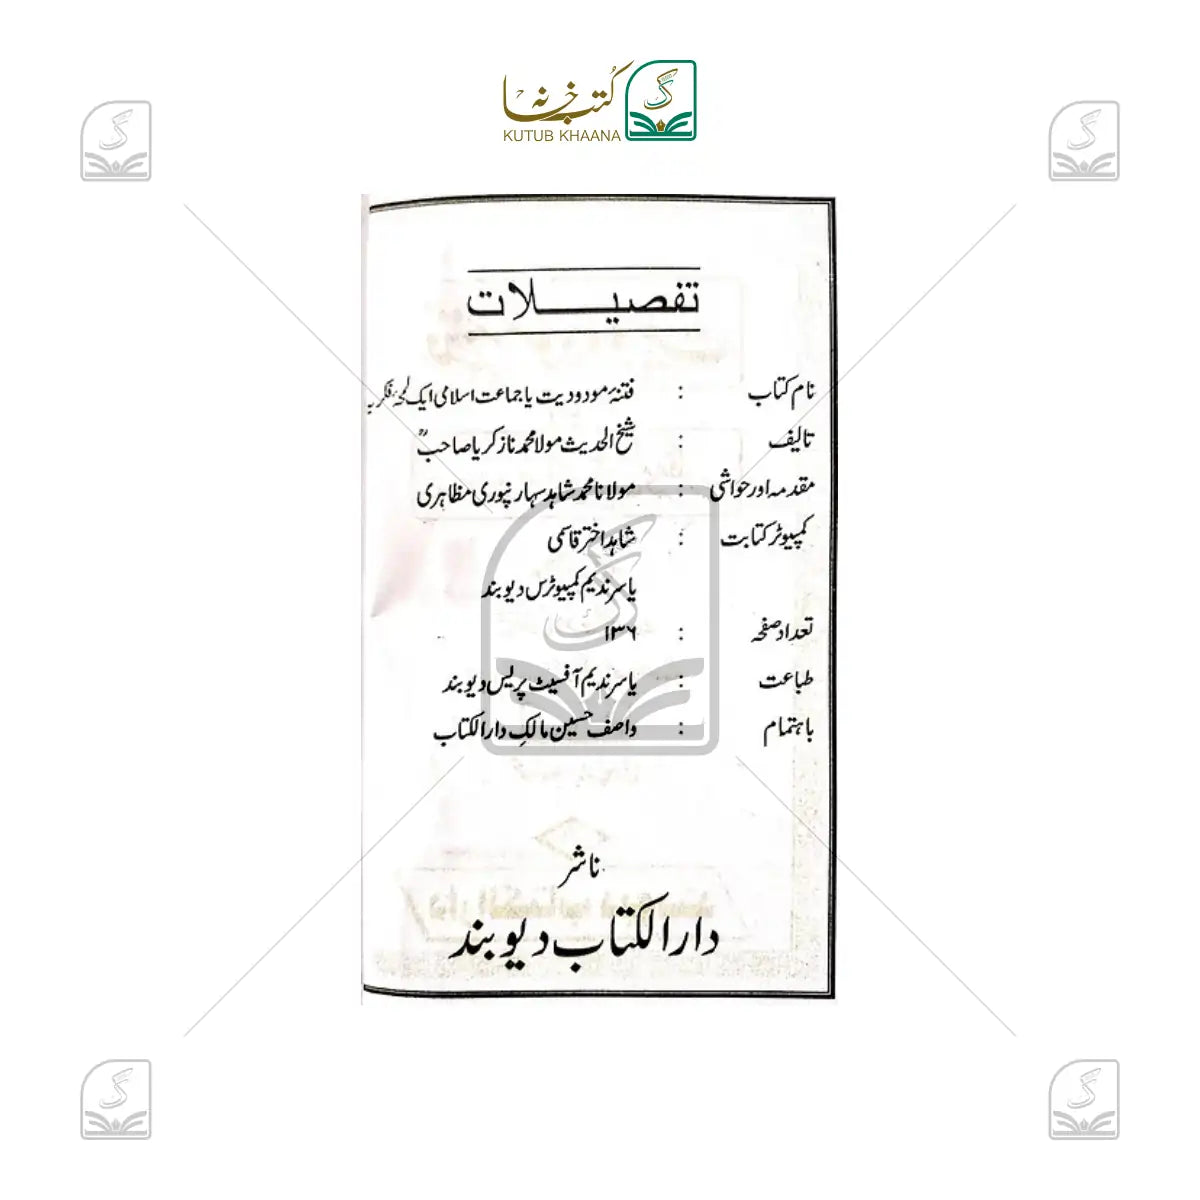 کتب خانہ
KUTUB KHAANA
تفصیلات
نام کتاب : فتنۂ مودودیت یا جماعت اسلامی ایک لمحۂ فکریہ
تالیف : شیخ الحدیث مولانا محمد زکریا صاحبؒ
مقدمہ اور حواشی : مولانا محمد شاہد سہارنپوری مظاہری
کمپیوٹر کتابت : شاہد اختر قاسمی
یاسر ندیم کمپیوٹرس دیوبند
تعداد صفحہ : ۱۳۶
طباعت : یاسر ندیم آفسیٹ پریس دیوبند
باہتمام : واصف حسین مالک دارالکتاب
ناشر
دارالکتاب دیوبند